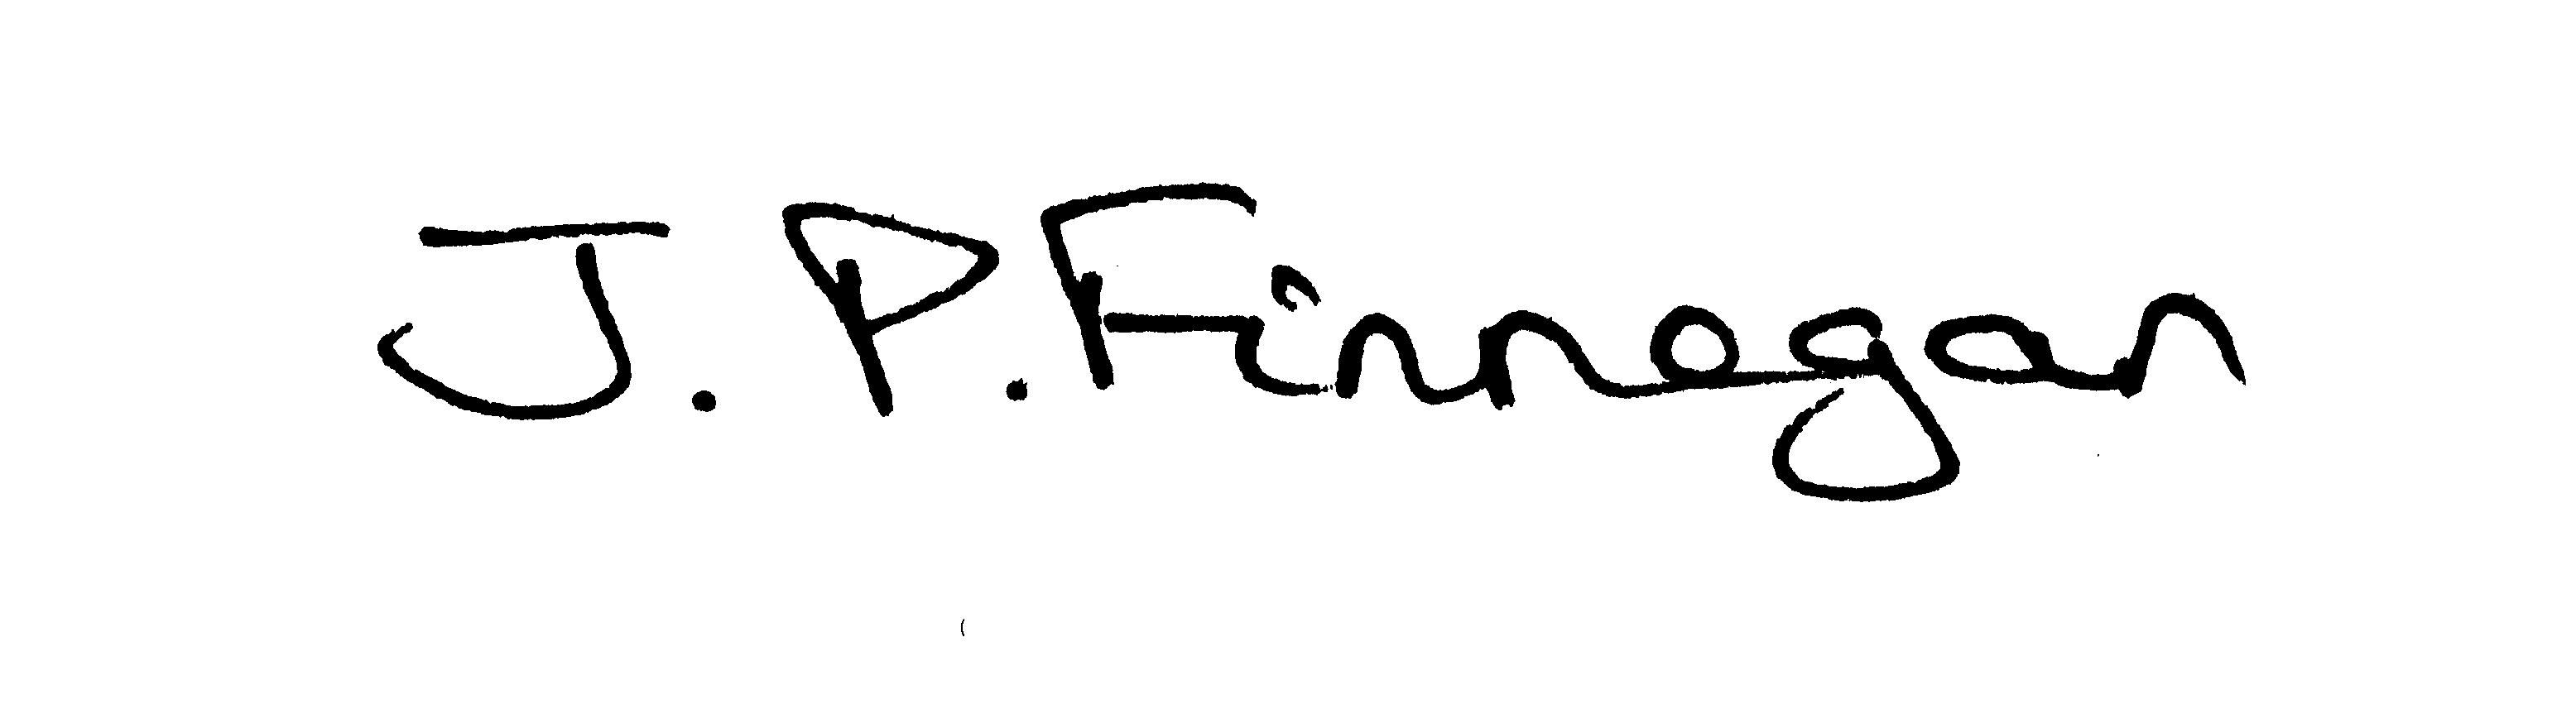 J. P. Finnegan